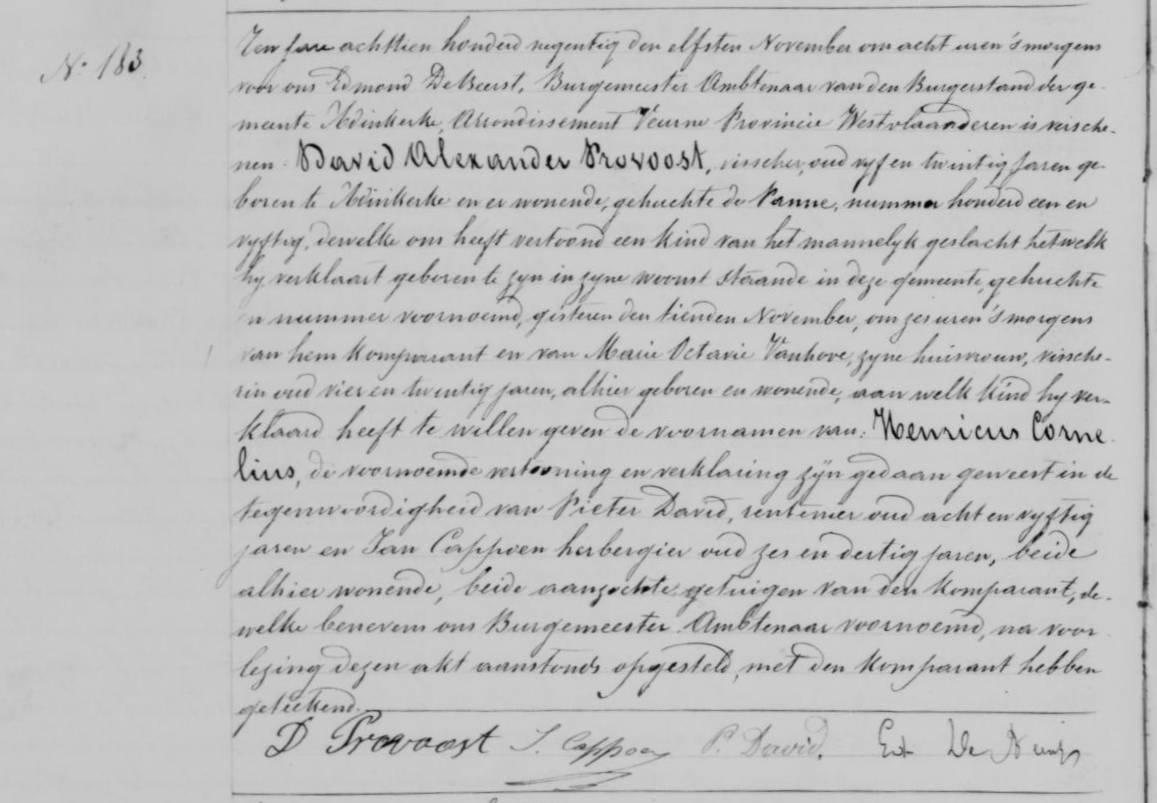 N.º 183.
Ten jare achttien honderd negentig den elfsten November om acht uren 's morgens
voor ons Edmond De Beerst, Burgemeester Ambtenaar van den Burgerstand der ge-
meente Adinkerke, Arrondissement Veurne Provincie Westvlaanderen is versche-
nen David Alexander Provoost, visscher, oud vyf en twintig jaren ge-
boren te Adinkerke en er wonende, gehuchte de Panne, nummer honderd een en
vyftig, dewelke ons heeft vertoond een kind van het mannelyk geslacht hetwelk
hy verklaart geboren te zyn in zyne woonst staande in deze gemeente, gehuchte
en nummer voornoemd, gisteren den tienden November, om zes uren 's morgens
van hem komparant en van Marie Octavie Vanhove, zyne huisvrouw, vissche-
rin oud vier en twintig jaren, alhier geboren en wonende, aan welk kind hy ver-
klaard heeft te willen geven de voornamen van: Henricus Corne-
lius, de voornoemde vertooning en verklaring zÿn gedaan geweest in de
tegenwoordigheid van Pieter David, rentenier oud acht en vyftig
jaren en Jan Cappoen herbergier oud zes en dertig jaren, beide
alhier wonende, beide aanzochte getuigen van den komparant, de-
welke benevens ons Burgemeester Ambtenaar voornoemd, na voor-
lezing dezen akt aanstonds opgesteld, met den komparant hebben
geteekend.
D Provoost J. Cappoen P. David. Ed De